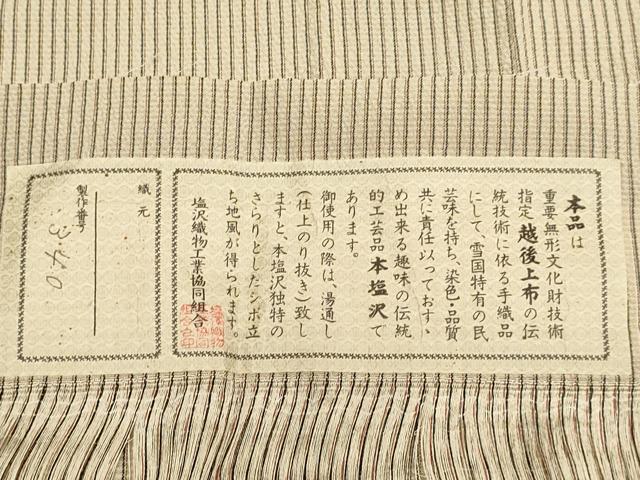 本品は
重要無形文化財技術
指定越後上布の伝
統技術に依る手織品
にして、雪国特有の民
芸味を持ち、染色・品質
共に責任以っておすゝ
め出来る趣味の伝統
的工芸品本塩沢で
あります。
御使用の際は、湯通し
(仕上のり抜き)致し
ますと、本塩沢独特の
さらりとしたシボ立
ち地風が得られます。
塩沢織物工業協同組合
織元
製作番号
3.40